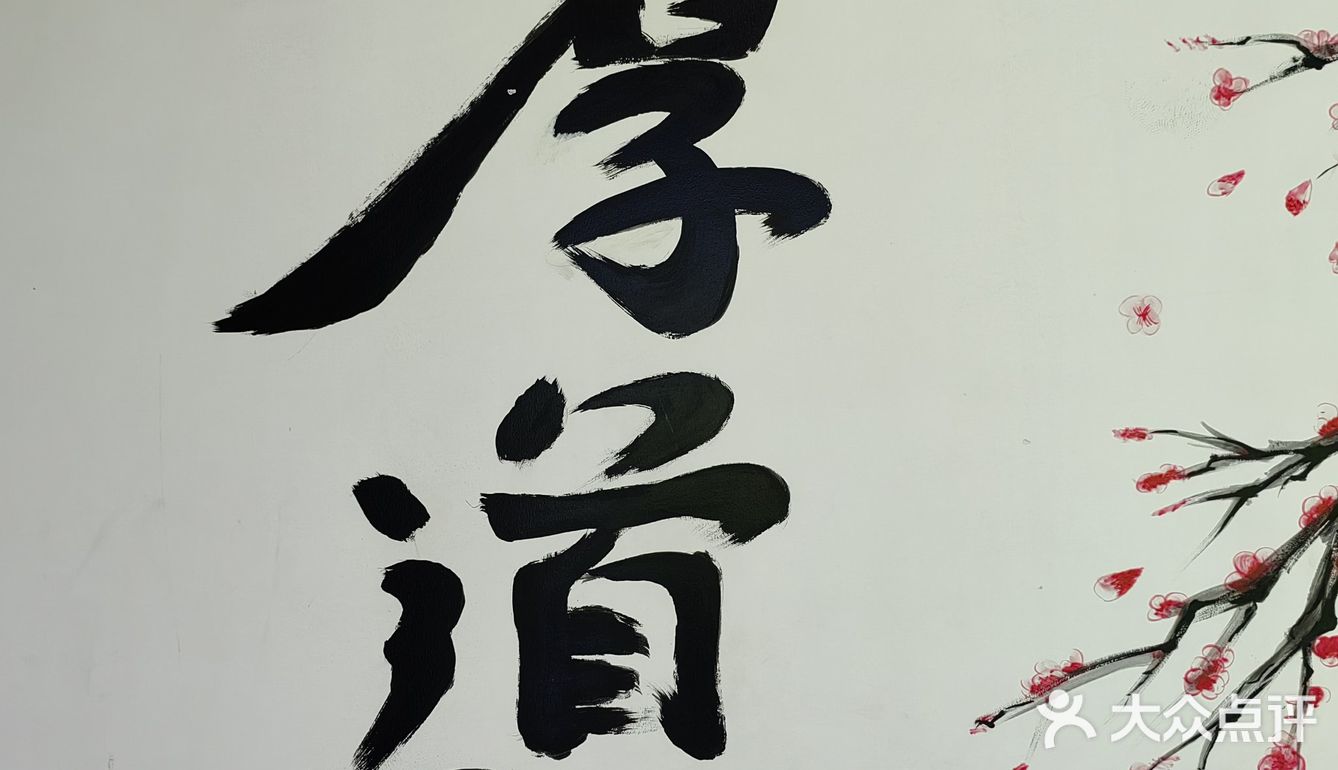 厚
道
大众点评